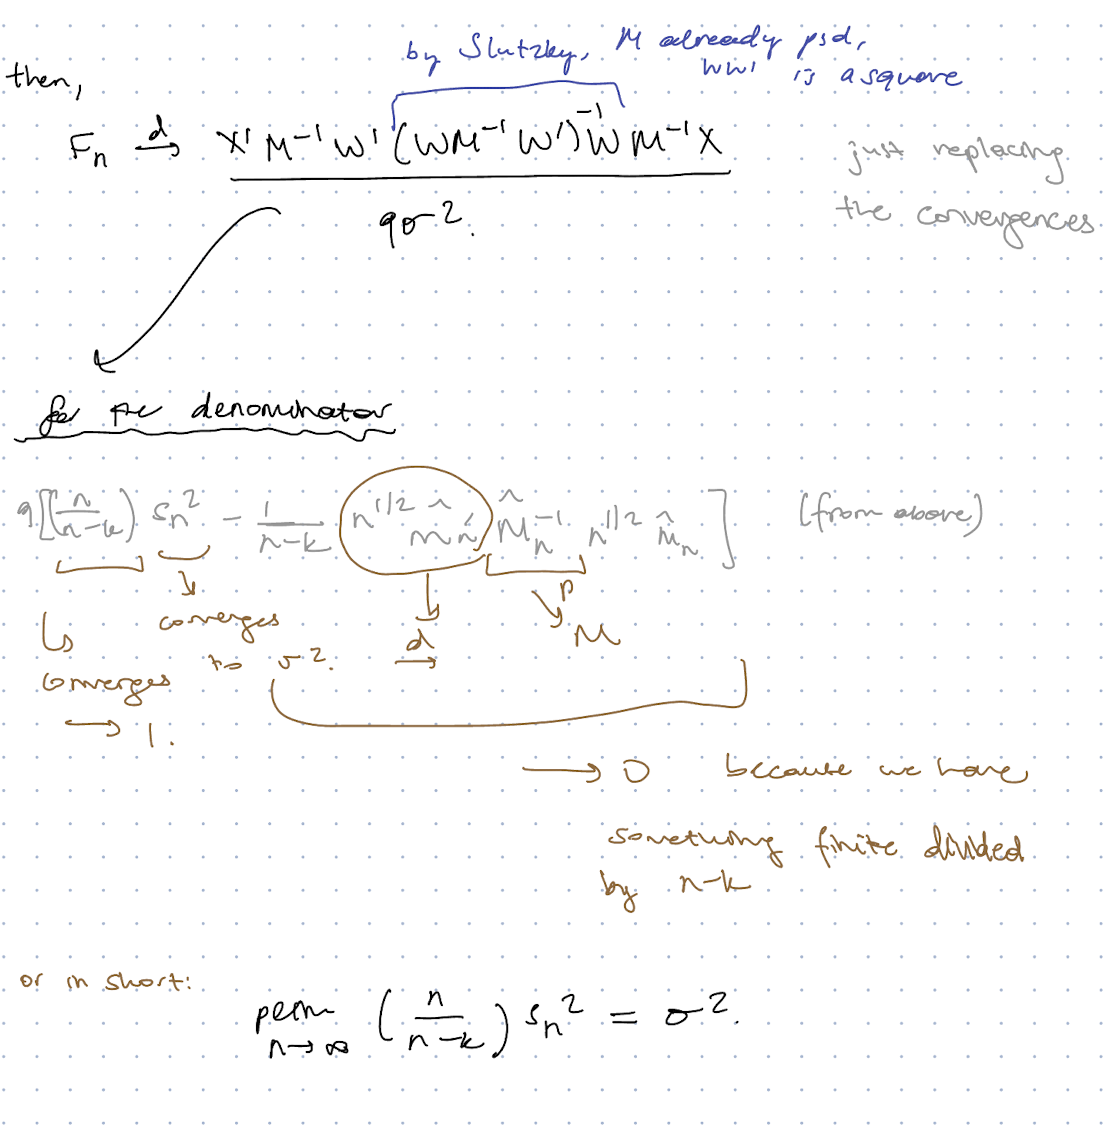 by Slutzky, M already psd,
WW' is a square
then,
Fn →d X' M⁻¹ W' (WM⁻¹ W')⁻¹ W M⁻¹ X
qσ².
just replacing
the convergences
for the denominator
q[(n/(n-k)) sn² - 1/(n-k) n^1/2 m̂'n M̂n⁻¹ n^1/2 m̂n] (from above)
↳ converges → 1.
↓ converges to σ².
→d
↘p M
→ 0 because we have
something finite divided
by n-k
or in short:
plim n→∞ (n/(n-k)) sn² = σ².